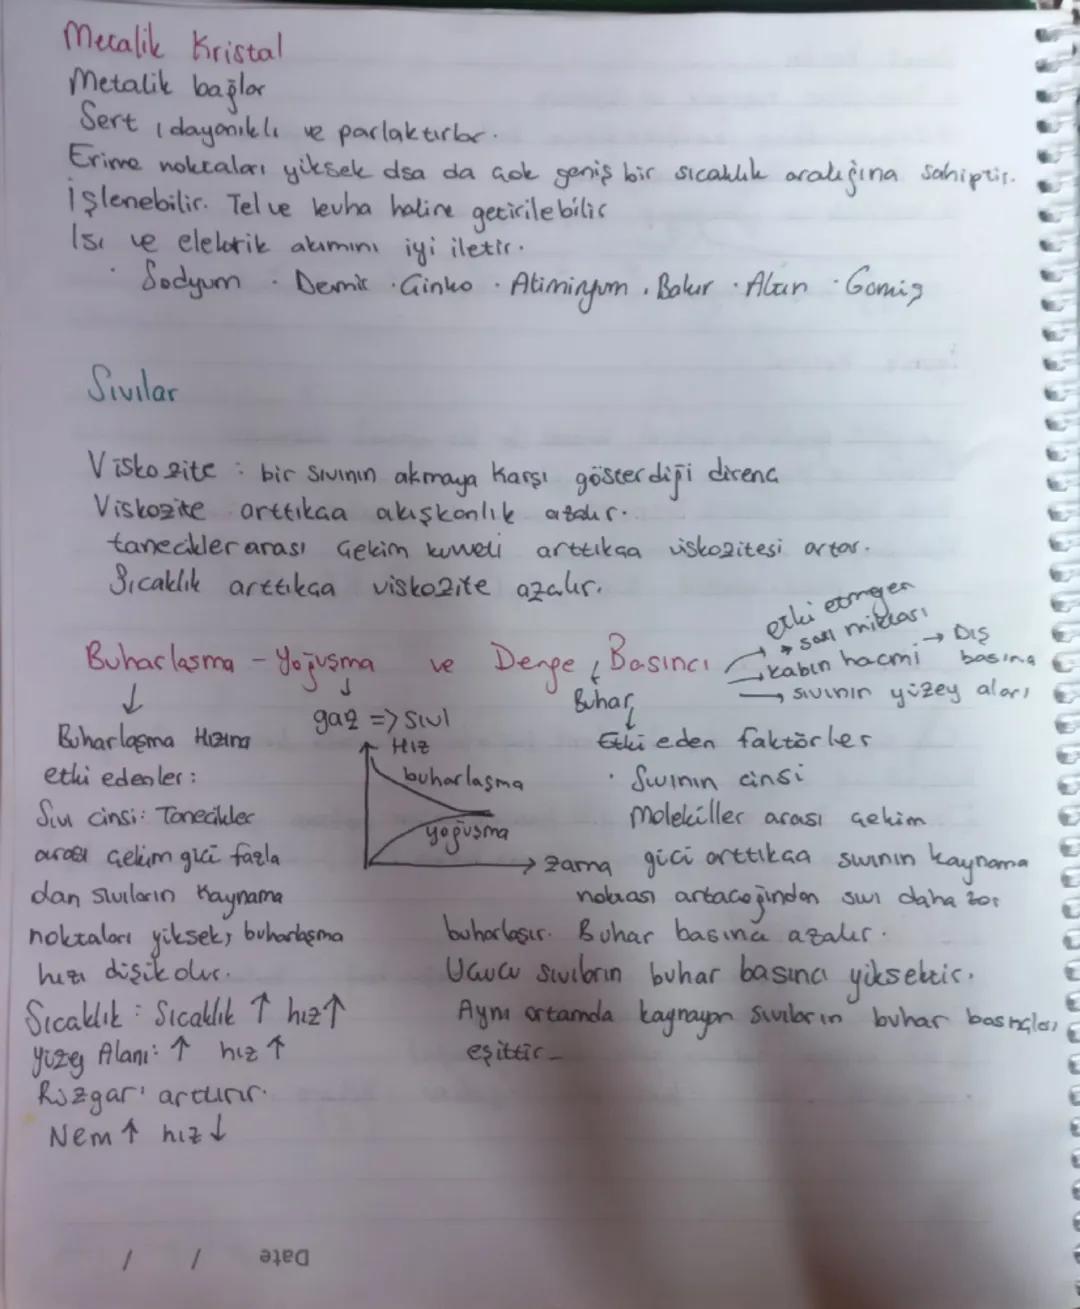 Metalik Kristal
Metalik bağlar
Sert, dayanıklı ve parlaktırlar.
Erime noktaları yüksek olsa da çok geniş bir sıcaklık aralığına sahiptir.
İşlenebilir. Tel ve levha haline getirilebilir
Isı ve elektrik akımını iyi iletir.
· Sodyum · Demir · Çinko · Alüminyum · Bakır · Altın · Gümüş
Sıvılar
Viskozite : bir sıvının akmaya karşı gösterdiği direnç
Viskozite arttıkça akışkanlık azalır.
tanecikler arası çekim kuvveti arttıkça viskozitesi artar.
Sıcaklık arttıkça viskozite azalır.
Buharlaşma - Yoğuşma ve Denge Buhar Basıncı
etki etmeyen
→ sıvı miktarı
→ kabın hacmi → Dış basınç
→ sıvının yüzey alanı
↓
Buharlaşma Hızına
etki edenler :
Sıvı cinsi: Tanecikler
arası çekim gücü fazla
olan sıvıların Kaynama
noktaları yüksek, buharlaşma
hızı düşük olur.
Sıcaklık : Sıcaklık ↑ hız ↑
Yüzey Alanı: ↑ hız ↑
Rüzgar: artırır.
Nem ↑ hız ↓
↓
gaz => sıvı
Hız
buharlaşma
yoğuşma
zaman
↓
Etki eden faktörler
· Sıvının cinsi
Moleküller arası çekim
gücü arttıkça sıvının kaynama
noktası artacağından sıvı daha zor
buharlaşır. Buhar basıncı azalır.
Uçucu sıvıların buhar basıncı yüksektir.
Aynı ortamda kaynayan sıvıların buhar basınçları
eşittir.
Date / /